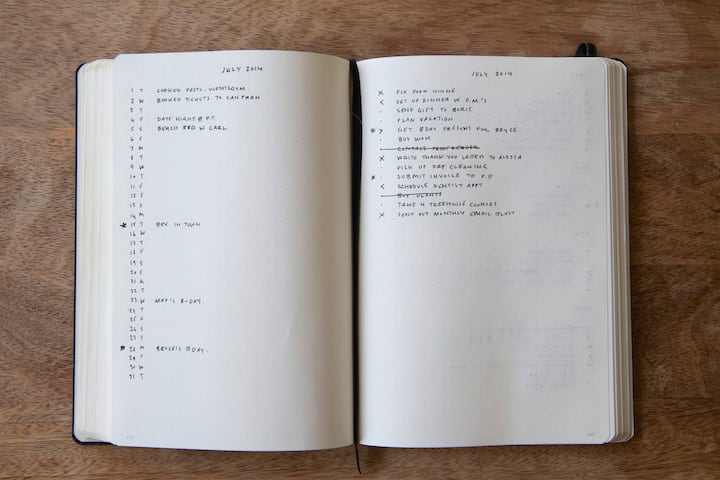 JULY 2014
1 T COOKED PESTO, WENT GYM.
2 W BOOKED TICKETS TO SAN FRAN
3 T
4 F DATE NIGHT @ P.T.
5 S BEACH BBQ W CARL
6 S
7 M
8 T
9 W
10 T
11 F
12 S
13 S
14 M
* 15 T BEV IN TOWN
16 W
17 T
18 F
19 S
20 S
21 M
22 T
23 W MAX'S B-DAY.
24 T
25 F
26 S
27 S
* 28 M BRYCE'S BDAY.
29 T
30 W
31 T
JULY 2014
X FIX DOOR HINGE
< SET UP DINNER W F.M.'S
· SEND GIFT TO BORIS
· PLAN VACATION
* > GET BDAY PRESENT FOR BRYCE
· BUY WOK
CONTACT PROOFREADER
X WRITE THANK YOU LETTER TO ALYSSA
· PICK UP DRY CLEANING
* · SUBMIT INVOICE TO P.P
< SCHEDULE DENTIST APPT
BUY PLANTS
· TAKE 4 TREEHOUSE COURSES
X SEND OUT MONTHLY EMAIL BLAST